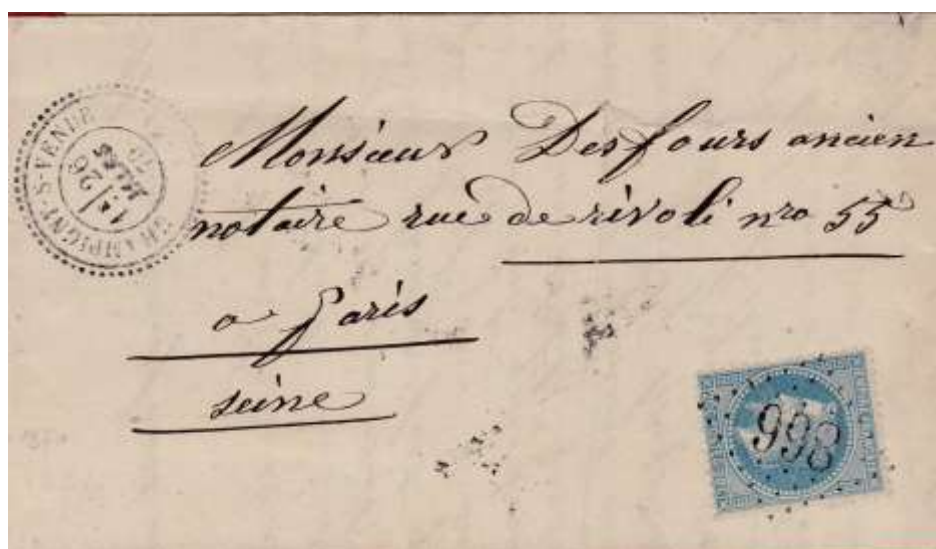 CHAMPIGNY-S-VEUDE
1E/
26
MARS
70
Monsieur Desfours ancien
notaire rue de rivoli nro 55
a paris
seine
998